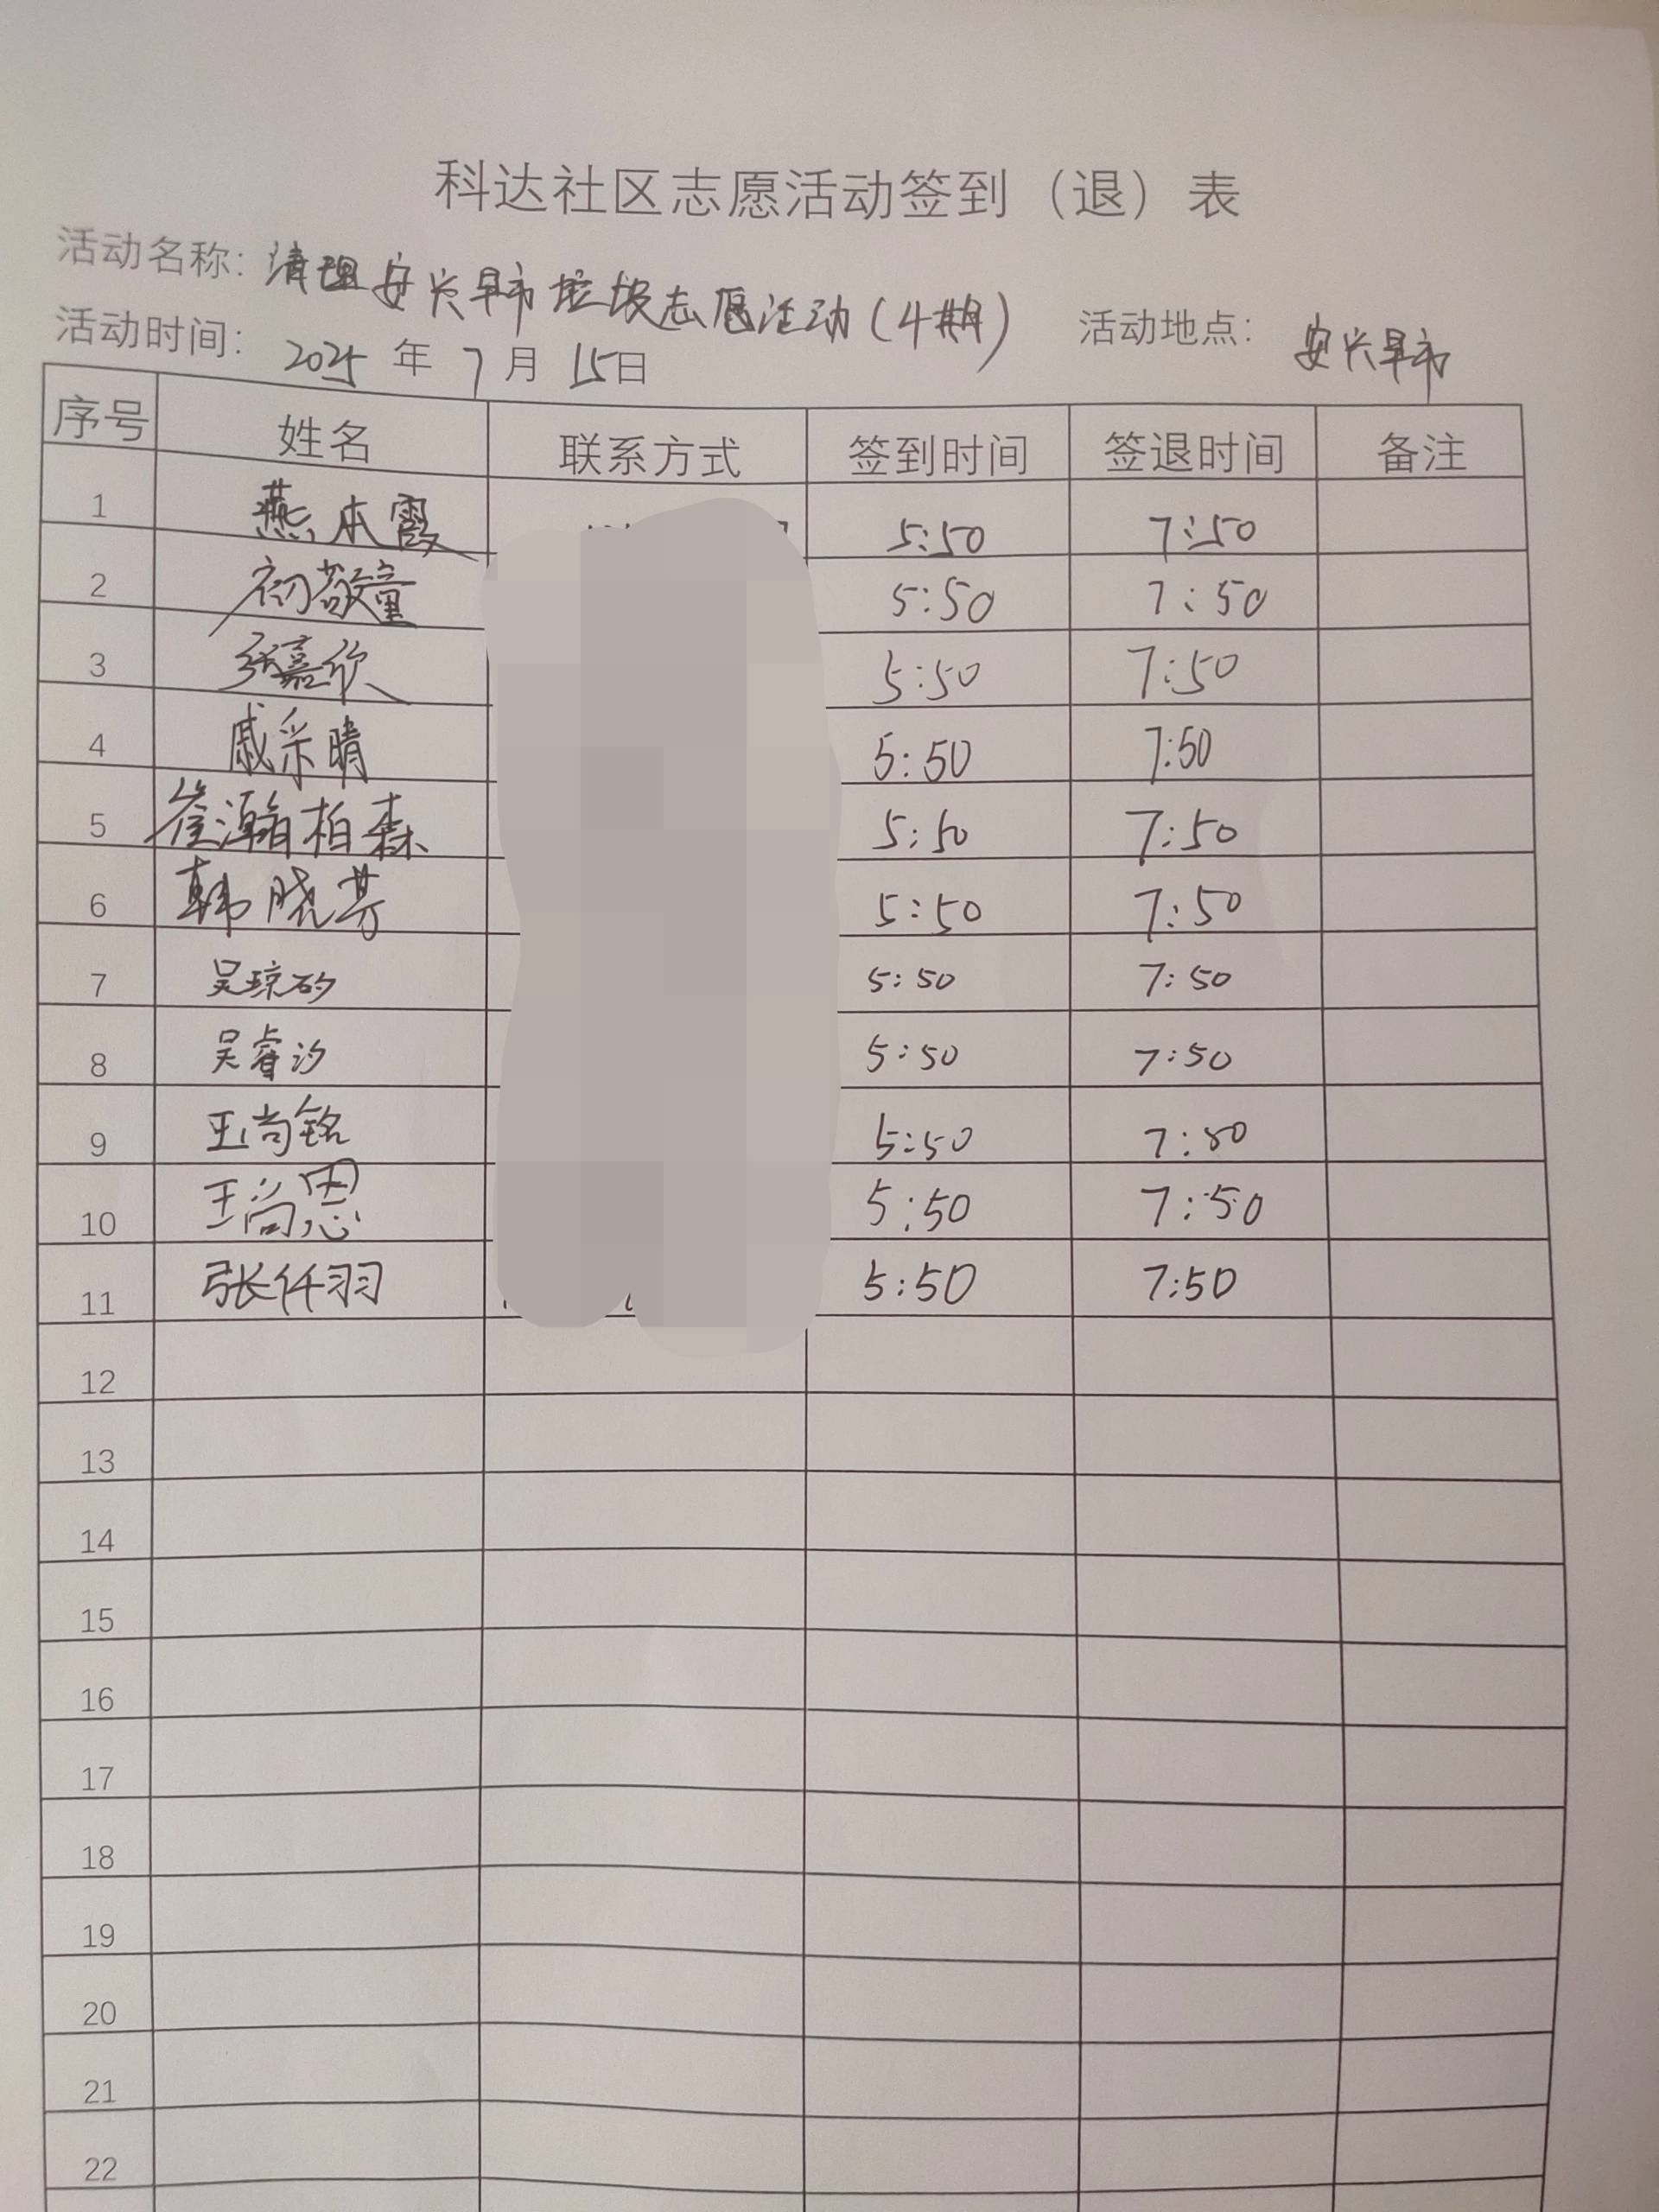 科达社区志愿活动签到（退）表
活动名称：清理安兴早市垃圾志愿活动（4期）
活动时间：2025年7月15日 活动地点：安兴早市
序号 姓名 联系方式 签到时间 签退时间 备注
1 燕本霞 5:50 7:50
2 初敬童 5:50 7:50
3 张嘉欣 5:50 7:50
4 戚采晴 5:50 7:50
5 崔瀚柏森 5:50 7:50
6 韩晓芳 5:50 7:50
7 吴琼矽 5:50 7:50
8 吴睿汐 5:50 7:50
9 王尚铭 5:50 7:50
10 王尚恩 5:50 7:50
11 张仟羽 5:50 7:50
12
13
14
15
16
17
18
19
20
21
22